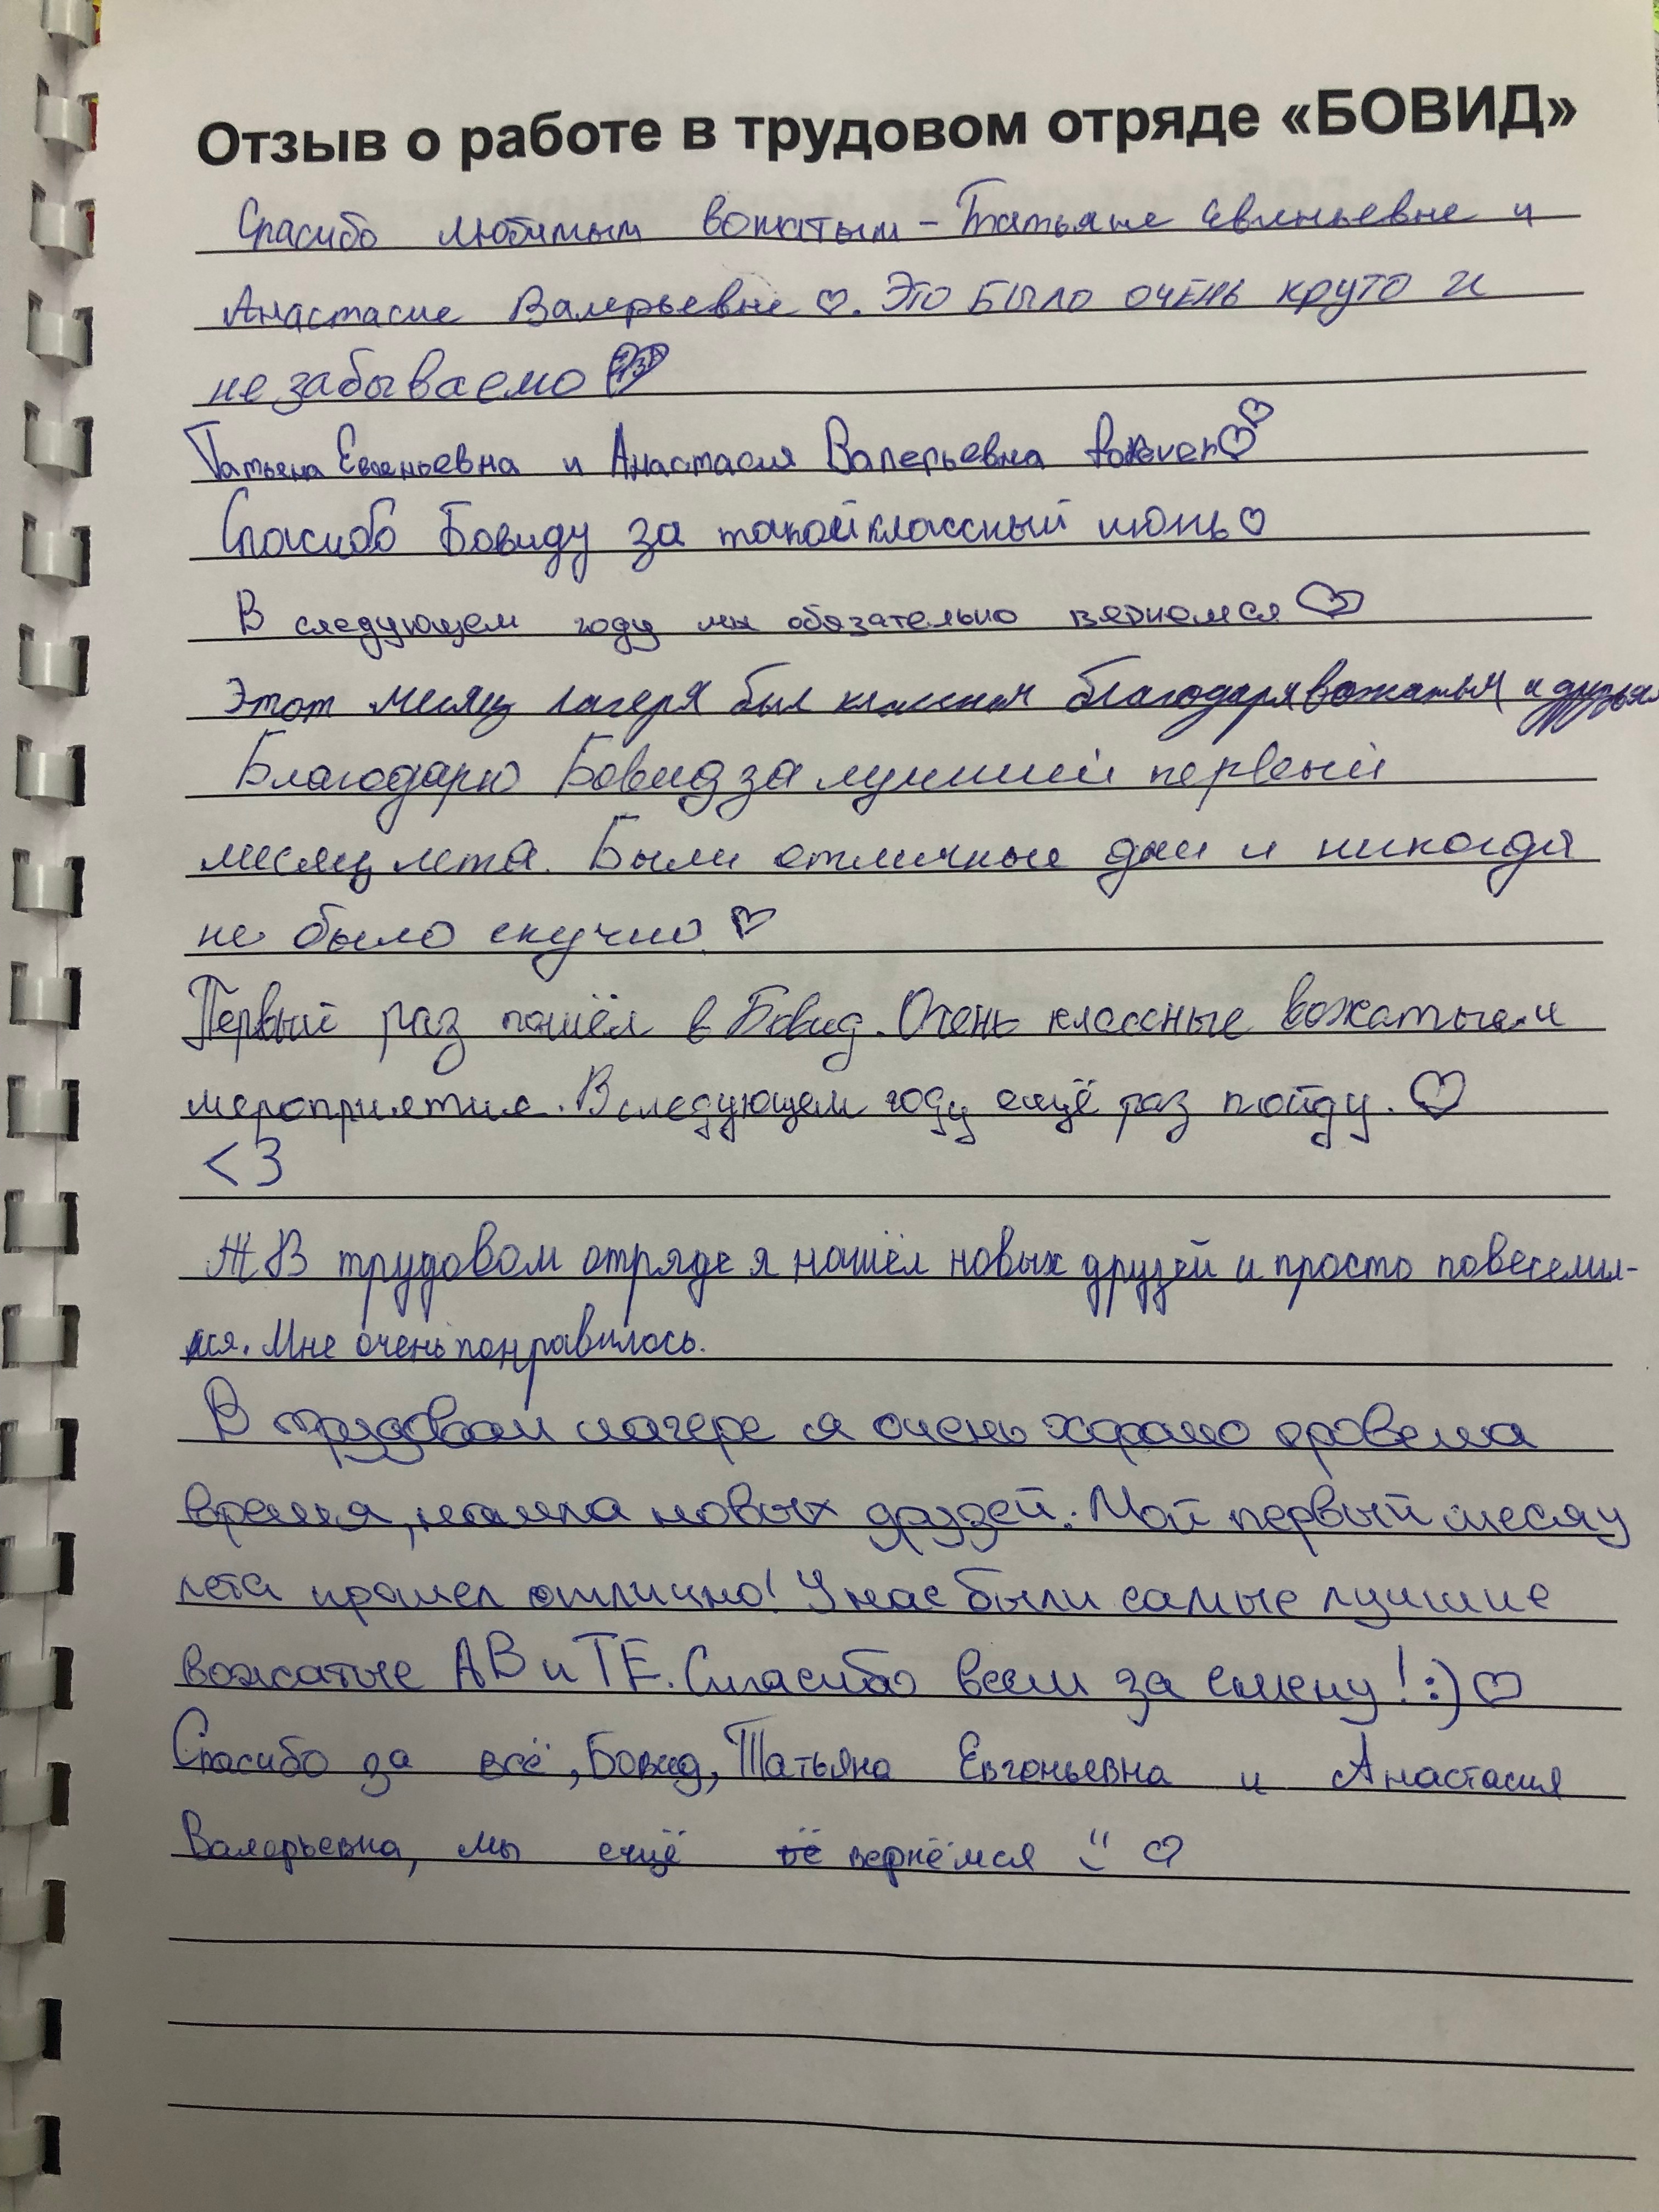 Отзыв о работе в трудовом отряде «БОВИД»
Спасибо любимым вожатым – Татьяне Евгеньевне и
Анастасие Валерьевне ♡. Это было очень круто и
незабываемо
Татьяна Евгеньевна и Анастасия Валерьевна forever♡♡
Спасибо Бовиду за такой классный июнь♡
В следующем году мы обязательно вернемся♡
Этот месяц лагеря был классным благодаря вожатым и друзьям
Благодарю Бовид за лучший первый
месяц лета. Были отличные дни и никогда
не было скучно. ♡
Первый раз пошёл в Бовид. Очень классные вожатые и
мероприятия. В следующем году ещё раз пойду. ♡
<3
В трудовом отряде я нашёл новых друзей и просто повесели-
лся. Мне очень понравилось.
В трудовом лагере я очень хорошо провела
время, нашла новых друзей. Мой первый месяц
лета прошел отлично! У нас были самые лучшие
вожатые АВ и ТЕ. Спасибо всем за смену! :) ♡
Спасибо за всё, Бовид, Татьяна Евгеньевна и Анастасия
Валерьевна, мы ещё вернёмся ♡